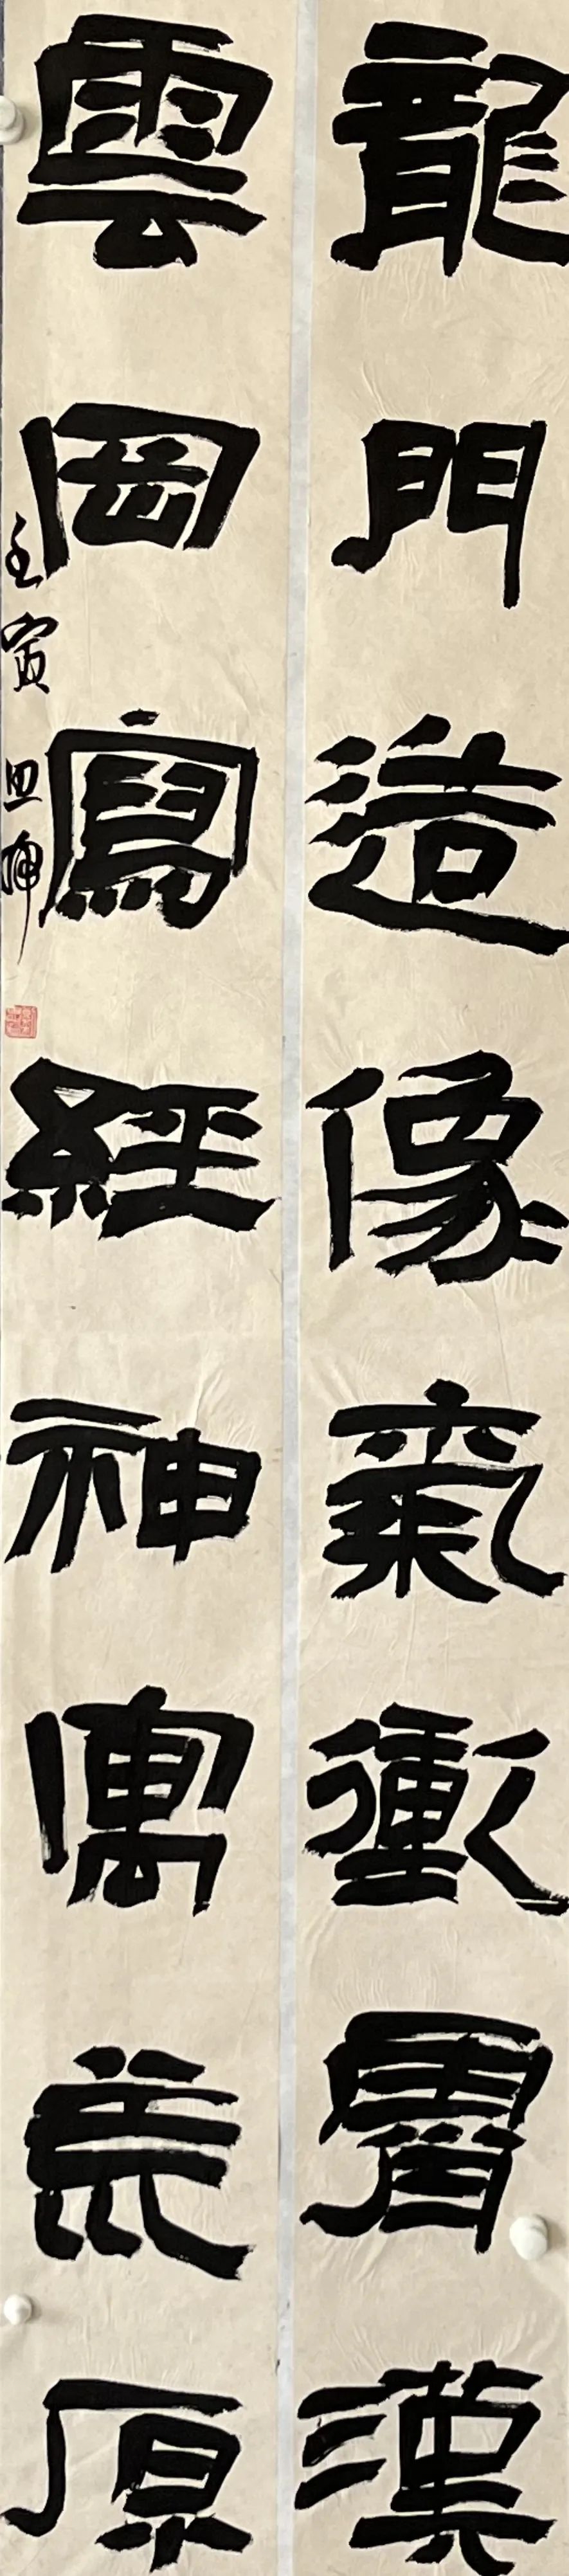 龍門造像氣衝霄漢
雲岡寫經神寓荒原
壬寅
坤